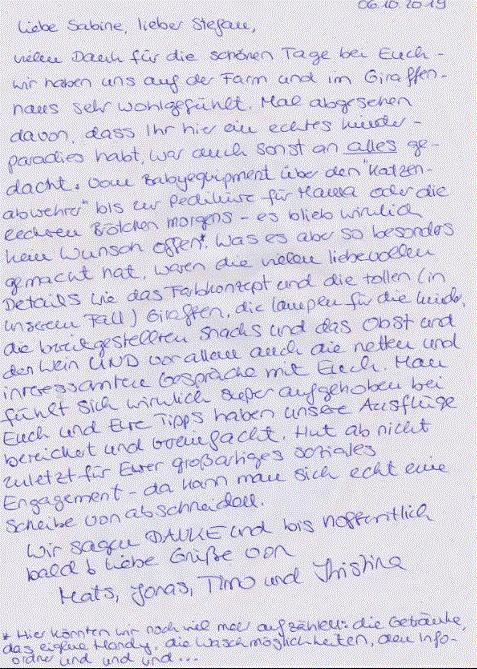 06.10.2019
Liebe Sabine, lieber Stefan,
vielen Dank für die schönen Tage bei Euch -
wir haben uns auf der Farm und im Giraffen-
haus sehr wohlgefühlt. Mal abgesehen
davon, dass Ihr hier ein echtes Kinder-
paradies habt, war auch sonst an alles ge-
dacht. Vom Babyequipment über den "Katzen-
abwehrer" bis zur Pediküre für Mama oder die
leckeren Brötchen morgens - es blieb wirklich
kein Wunsch offen*. Was es aber so besonders
gemacht hat, waren die vielen liebevollen
Details wie das Farbkonzept und die tollen (in
unserem Fall) Giraffen, die Lampen für die Kinder,
die bereitgestellten Snacks und das Obst und
der Wein UND vor allem auch die netten und
interessanten Gespräche mit Euch. Man
fühlt sich wirklich super aufgehoben bei
Euch und Eure Tipps haben unsere Ausflüge
bereichert und vereinfacht. Hut ab nicht
zuletzt für Euer großartiges soziales
Engagement - da kann man sich echt eine
Scheibe von abschneiden.
Wir sagen DANKE und bis hoffentlich
bald & liebe Grüße von
Mats, Jonas, Timo und Christina
* Hier könnten wir noch viel mehr aufzählen: die Getränke,
das eigene Handy, die Waschmöglichkeiten, den Info-
ordner und und und ...